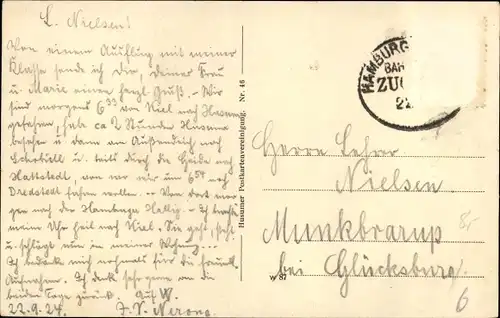 L. Nielsen!
Von einem Ausflug mit meiner
Klasse sende ich Dir, Deiner Frau
u. Marie einen herzl. Gruß. – Wir
sind morgens 6 33 von Kiel nach Husum
gefahren, ca 2 Stunden Husum
besehen u. dann am Außendeich nach
Schobüll u. teils durch die Heide nach
Hattstedt, von wo wir um 6 54 nach
Bredstedt fahren wollen. – Von dort
nach der Hamburger Hallig. – Ich
mein Uhr heil nach Kiel. Sie
u. schlägt nun in meiner
Ich bedank mich nochmals für die freundl.
Aufnahme. Ich denk sehr gerne an die
beiden Tage zurück.
22.9.24.
Husumer Postkartenvereinigung. Nr. 46
HAMBURG
BAH
ZU
22.
Herrn Lehrer
Nielsen.
Munkbrarup
bei Glücksburg
W 87
8,-
6